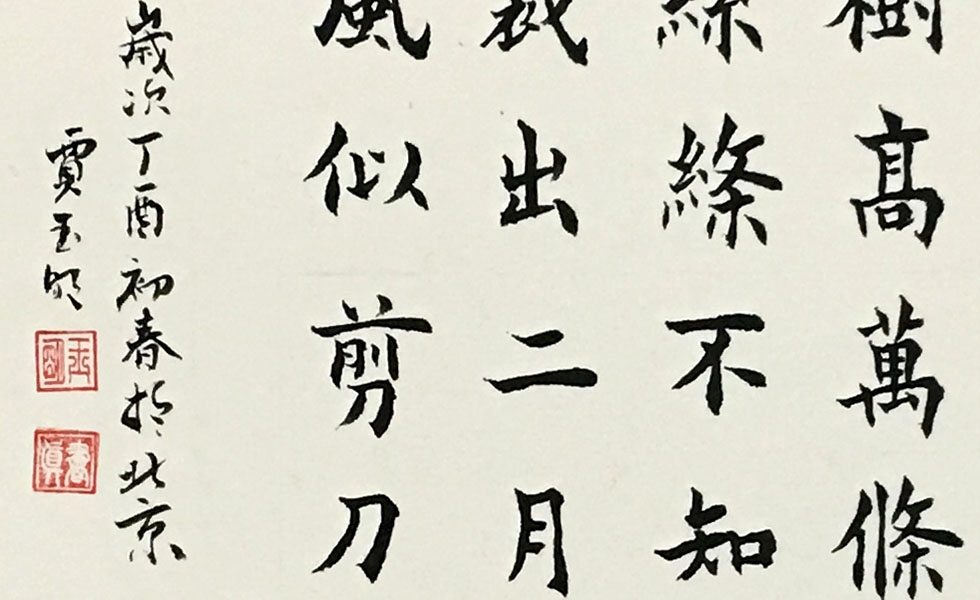 樹高萬條
絲絛不知
裁出二月
風似剪刀
歲次丁酉初春於北京
賈玉明